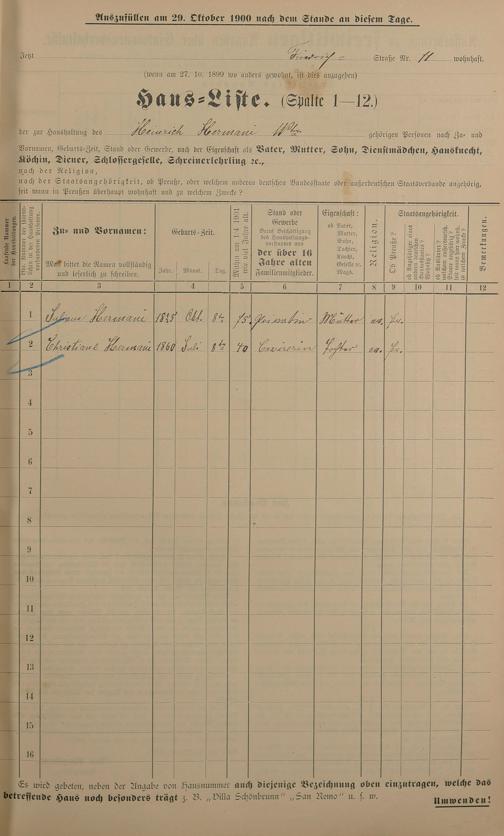 Auszufüllen am 29. Oktober 1900 nach dem Stande an diesem Tage.
Jetzt Friedrich= Straße Nr. 11 wohnhaft.
(wenn am 27. 10. 1899 wo anders gewohnt, ist dies anzugeben)
Haus=Liste. (Spalte 1—12.)
der zur Haushaltung des Heinrich Hermani Wtw gehörigen Personen nach Zu= und
Vornamen, Geburts=Zeit, Stand oder Gewerbe, nach der Eigenschaft als Vater, Mutter, Sohn, Dienstmädchen, Hausknecht,
Köchin, Diener, Schlossergeselle, Schreinerlehrling ꝛc.,
nach der Religion,
nach der Staatsangehörigkeit, ob Preuße, oder welchem anderen deutschen Bundesstaate oder außerdeutschen Staatsverbande angehörig,
seit wann in Preußen überhaupt wohnhaft und zu welchem Zwecke?
Zu= und Vornamen:
Man bittet die Namen vollständig
und leserlich zu schreiben.
Geburts=Zeit.
Jahr. Monat. Tag.
Mithin am 1./4. 1901
wie viel Jahre alt.
Stand oder
Gewerbe
der über 16
Jahre alten
Familienmitglieder.
Eigenschaft:
ob Vater,
Mutter,
Sohn,
Tochter,
Knecht,
Geselle ꝛc.
Magd.
Religion.
Staatsangehörigkeit.
Ob Preuße?
Bemerkungen.
1 2 3 4 5 6 7 8 9 10 11 12
1 Hermani 1825 Okt. 8te 75 Mutter ev. Pr.
2 Christiane Hermani 1860 Juli 8te 40 Tochter ev. Pr.
3
4
5
6
7
8
9
10
11
12
13
14
15
16
Es wird gebeten, neben der Angabe von Hausnummer auch diejenige Bezeichnung oben einzutragen, welche das
betreffende Haus noch besonders trägt z. B. „Villa Schönbrunn" „San Remo" u. s. w.
Umwenden!